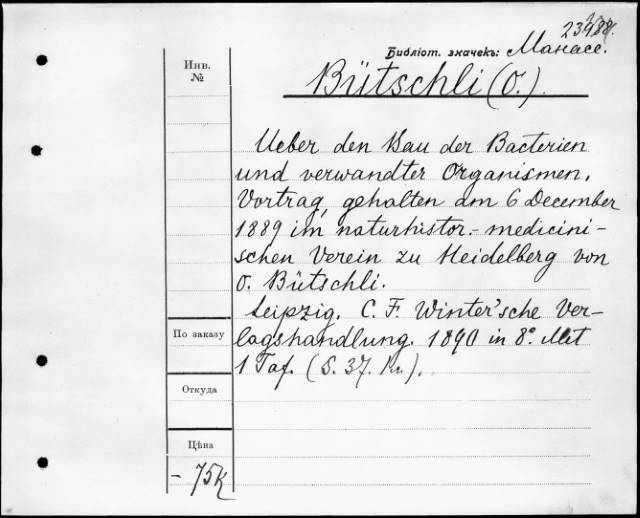 Библіот. значекъ: Манасе.
Инв.
№
Bütschli (O.).
Ueber den Bau der Bacterien
und verwandter Organismen,
Vortrag, gehalten am 6 December
1889 im naturhistor.-medicini-
schen Verein zu Heidelberg von
O. Bütschli.
Leipzig. C. F. Winter'sche Ver-
lagshandlung. 1890 in 8º. Mit
1 Taf. (S. 37.
По заказу
Откуда
Цѣна
- 75к